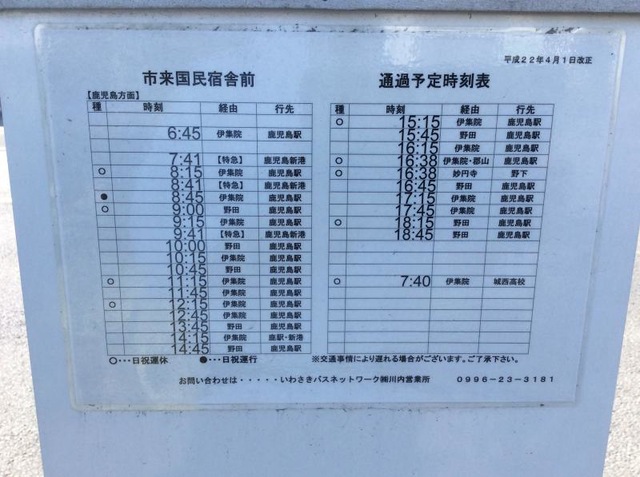 平成22年4月1日改正
市来国民宿舎前 通過予定時刻表
【鹿児島方面】
種 時刻 経由 行先
6:45 伊集院 鹿児島駅
7:41 【特急】 鹿児島新港
○ 8:15 伊集院 鹿児島駅
8:41 【特急】 鹿児島新港
● 8:45 伊集院 鹿児島駅
○ 9:00 野田 鹿児島駅
9:15 伊集院 鹿児島駅
9:41 【特急】 鹿児島新港
10:00 野田 鹿児島駅
10:15 伊集院 鹿児島駅
10:45 野田 鹿児島駅
○ 11:15 伊集院 鹿児島駅
11:45 伊集院 鹿児島駅
○ 12:15 伊集院 鹿児島駅
12:45 伊集院 鹿児島駅
13:45 野田 鹿児島駅
14:15 伊集院 鹿駅・新港
14:45 野田 鹿児島駅
種 時刻 経由 行先
○ 15:15 伊集院 鹿児島駅
15:45 野田 鹿児島駅
16:15 伊集院 鹿児島駅
○ 16:38 伊集院・郡山 鹿児島駅
○ 16:38 妙円寺 野下
16:45 野田 鹿児島駅
17:15 伊集院 鹿児島駅
17:45 伊集院 鹿児島駅
○ 18:15 野田 鹿児島駅
18:45 野田 鹿児島駅
○ 7:40 伊集院 城西高校
○・・・日祝運休 ●・・・日祝運行 ※交通事情により遅れる場合がございます。ご了承下さい。
お問い合わせは・・・・・いわさきバスネットワーク㈱川内営業所 0996-23-3181